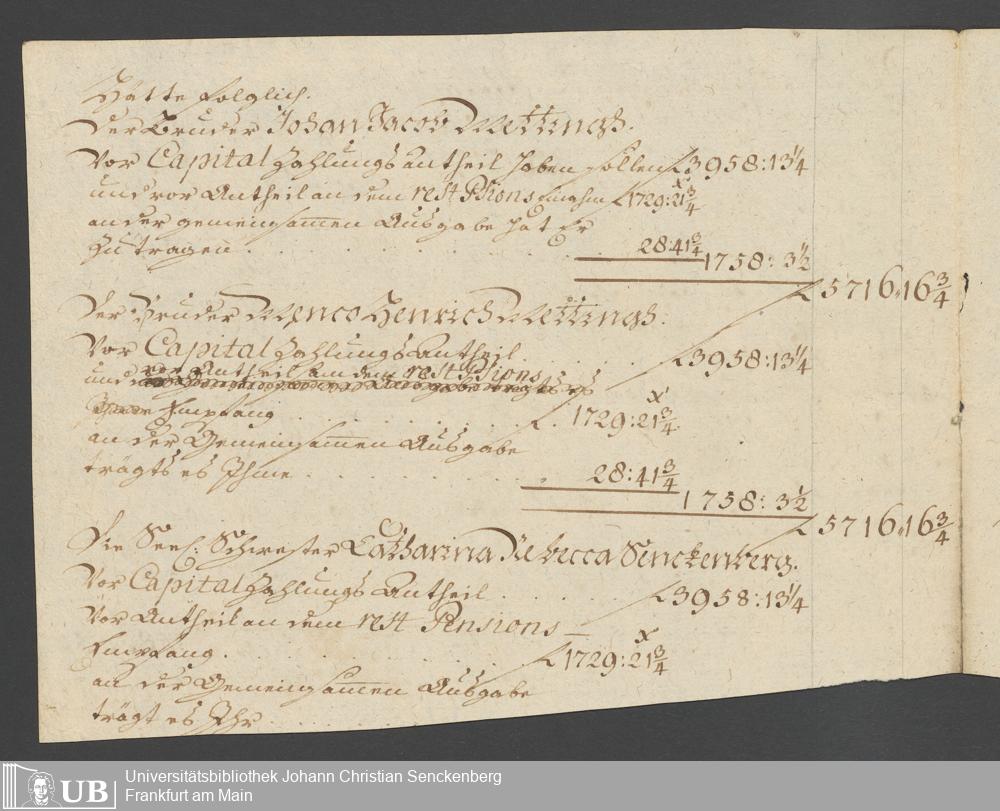 Hätte folglich.
Der Bruder Johan Jacob Mettingh.
Vor Capital Zahlungs Antheil haben sollen f 3958:13¼
und vor Antheil an dem rest Psions einghm f 1729:21¾ x
an der gemeinsamen Ausgabe hat Er
zu tragen . . . . . 28:41¾
1758: 3½
f 5716„16¾
Der Bruder Menco Henrich Mettingh.
Vor Capital Zahlungs Antheil . . . f 3958:13¼
und vor Antheil an dem rest Psions
Empfang . . . . . f. 1729:21¾ x
an der Gemeinsamen Ausgabe
trägts es Ihme . . . . . 28:41¾
1758: 3½
f 5716„16¾
Die Seel: Schwester Catharina Rebecca Senckenberg.
Vor Capital Zahlungs Antheil . . . . f 3958:13¼
Vor Antheil an dem rest Pensions
Empfang . . . . . f 1729:21¾ x
an der Gemeinsamen Ausgabe
trägt es Ihr . . . .
UB
Universitätsbibliothek Johann Christian Senckenberg
Frankfurt am Main